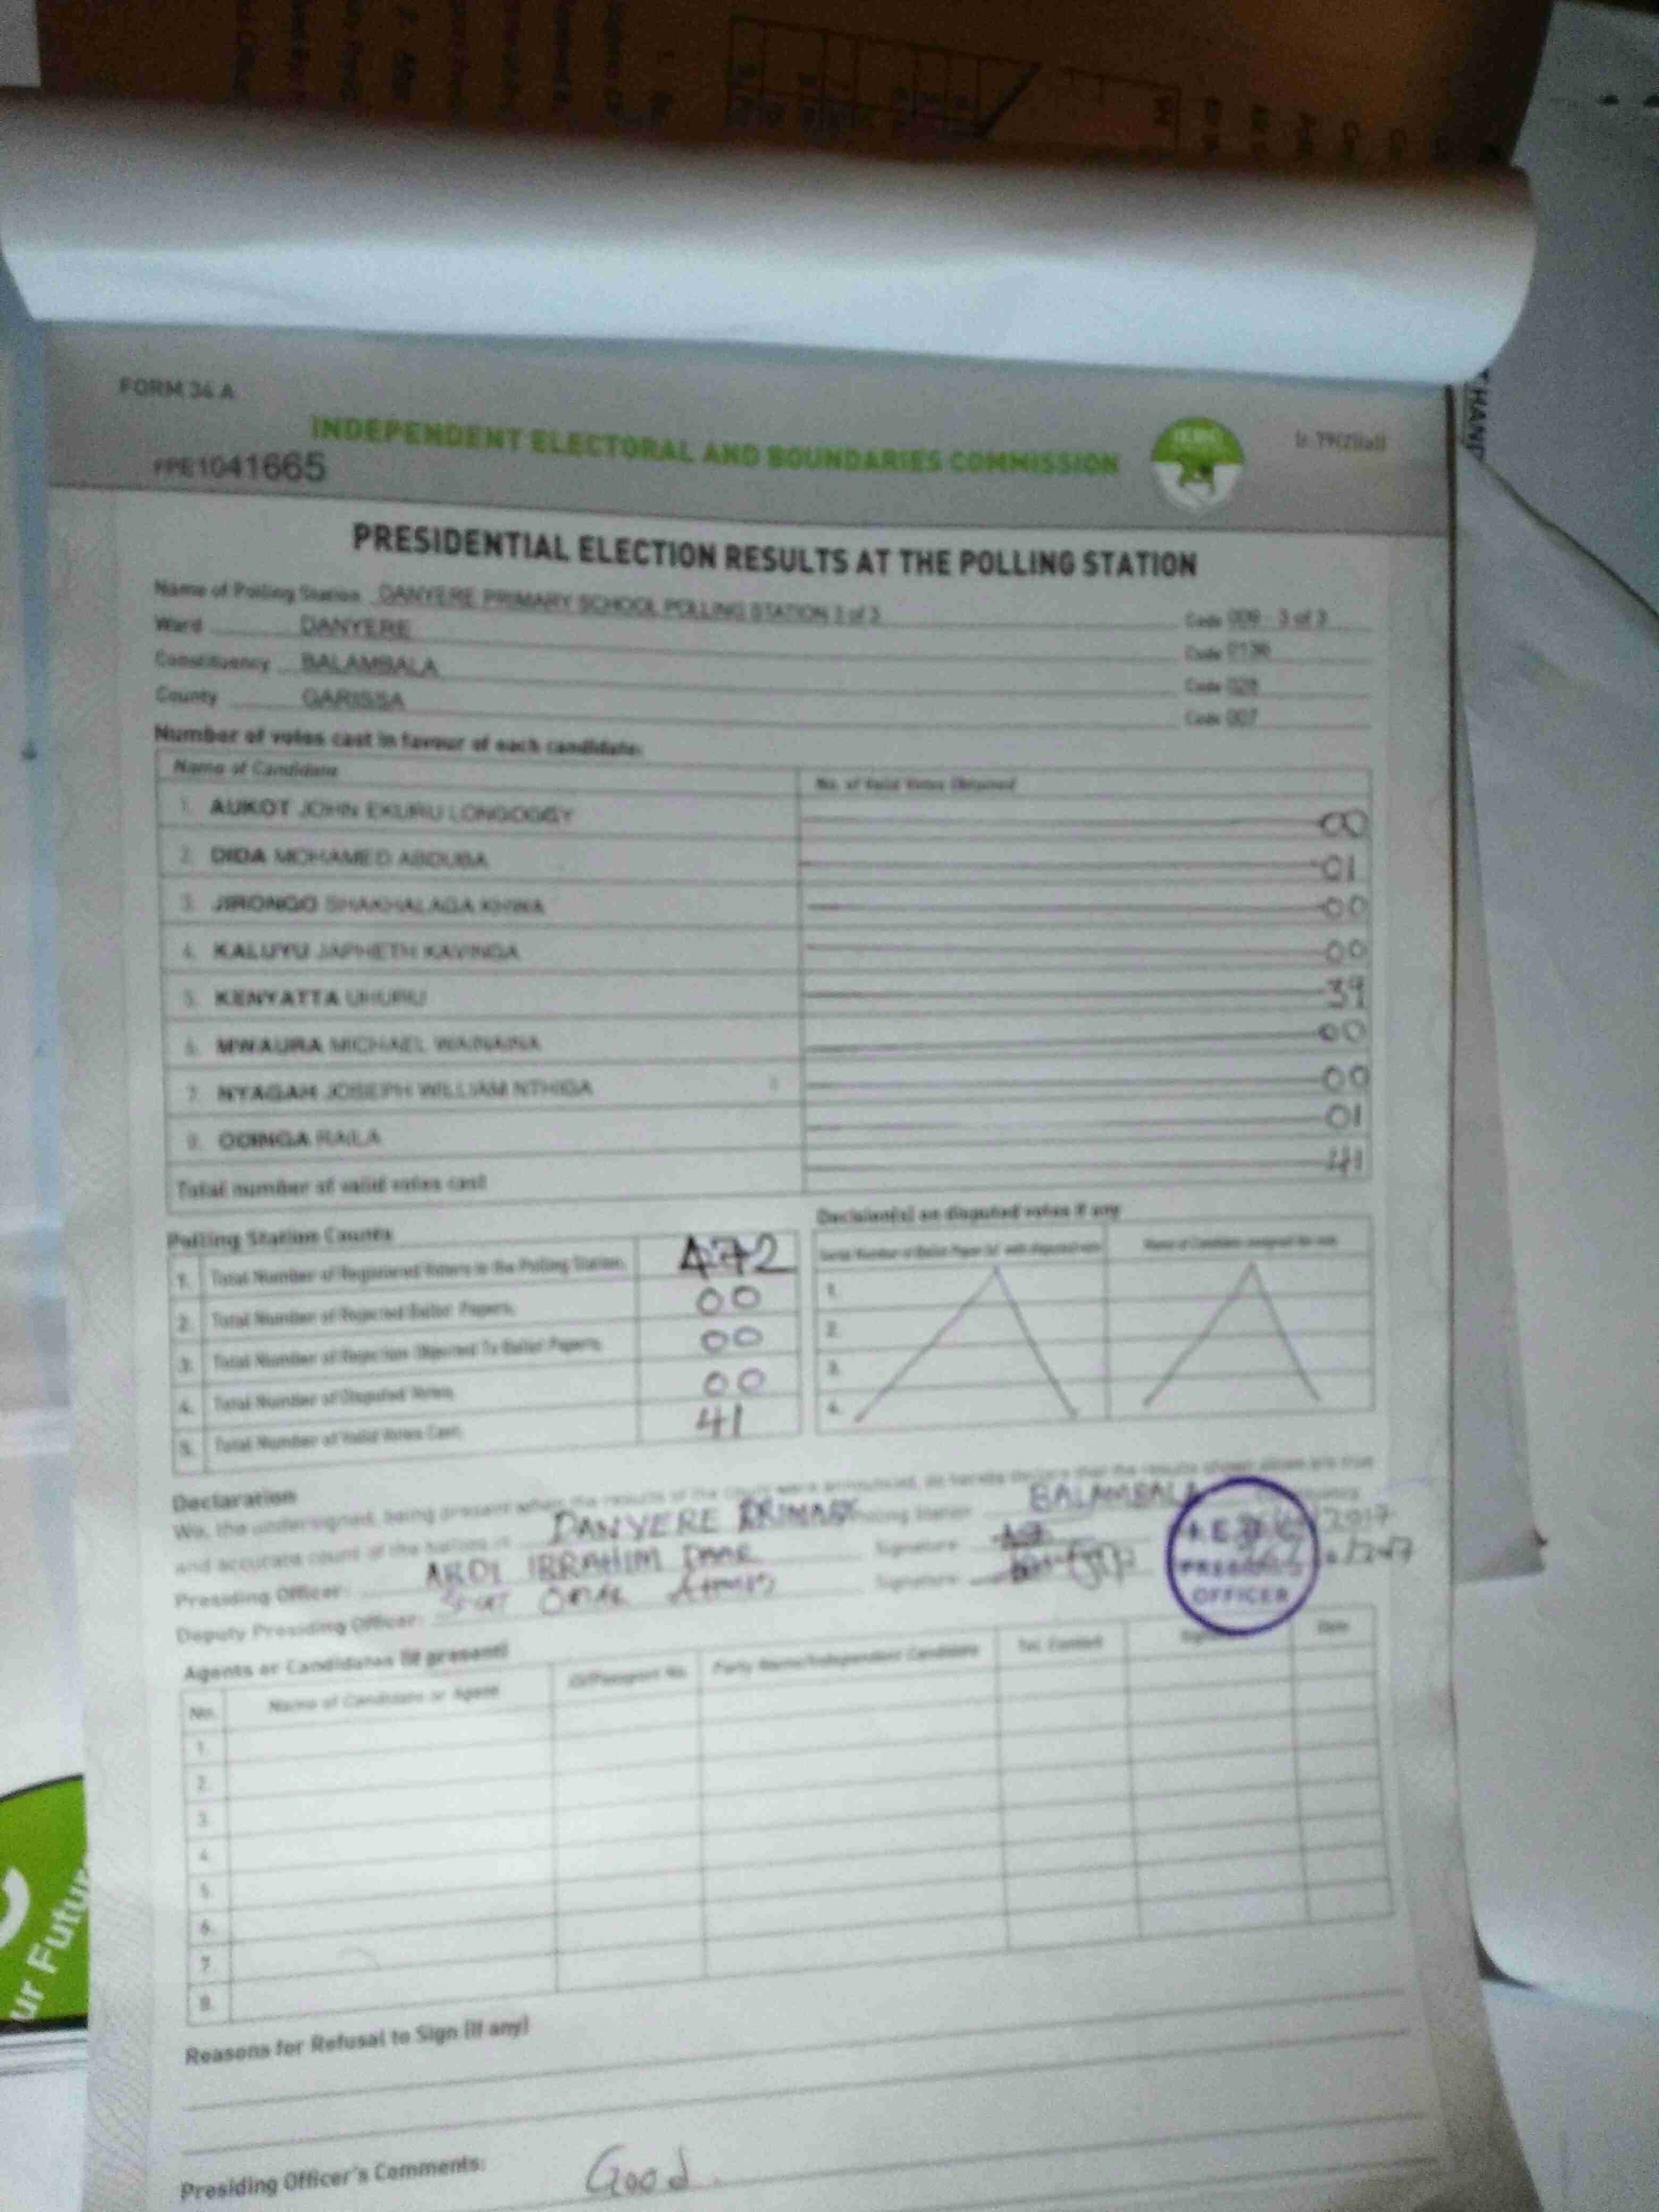 FORM 34 A
INDEPENDENT ELECTORAL AND BOUNDARIES COMMISSION
FPE1041665
PRESIDENTIAL ELECTION RESULTS AT THE POLLING STATION
Name of Polling Station DANYERE PRIMARY SCHOOL POLLING STATION 3 of 3 Code 009 3 of 3
Ward DANYERE Code
Constituency BALAMBALA Code 028
County GARISSA Code 007
Number of votes cast in favour of each candidate:
Name of Candidate No. of Valid Votes Obtained
1. AUKOT JOHN EKURU LONGOGGY 00
2. DIDA MOHAMED ABDUBA 01
3. JIRONGO SHAKHALAGA KHWA 00
4. KALUYU JAPHETH KAVINGA 00
5. KENYATTA UHURU 39
6. MWAURA MICHAEL WAINAINA 00
7. NYAGAH JOSEPH WILLIAM NTHIGA 00
8. ODINGA RAILA 01
Total number of valid votes cast 41
Polling Station Counts
1. Total Number of Registered Voters in the Polling Station 472
2. Total Number of Rejected Ballot Papers 00
3. Total Number of Rejection Objected To Ballot Papers 00
4. Total Number of Disputed Votes 00
5. Total Number of Valid Votes Cast 41
Decision(s) on disputed votes if any
Serial Number of Ballot Paper (s) with disputed vote Name of Candidate assigned the vote
1.
2.
3.
4.
Declaration
We, the undersigned, being present when the results of the count were announced, do hereby declare that the results shown above are true
and accurate count of the ballots in DANYERE PRIMARY Polling Station BALAMBALA
Presiding Officer: ABDI IBRAHIM Signature 2017
Deputy Presiding Officer: OMAR Signature
PRESIDING
OFFICER
Agents or Candidates (if present)
No. Name of Candidate or Agent ID/Passport No. Party Name/Independent Candidate Tel. Contact Date
1.
2.
3.
4.
5.
6.
7.
8.
Reasons for Refusal to Sign (if any)
Presiding Officer's Comments: Good.
ur Futur